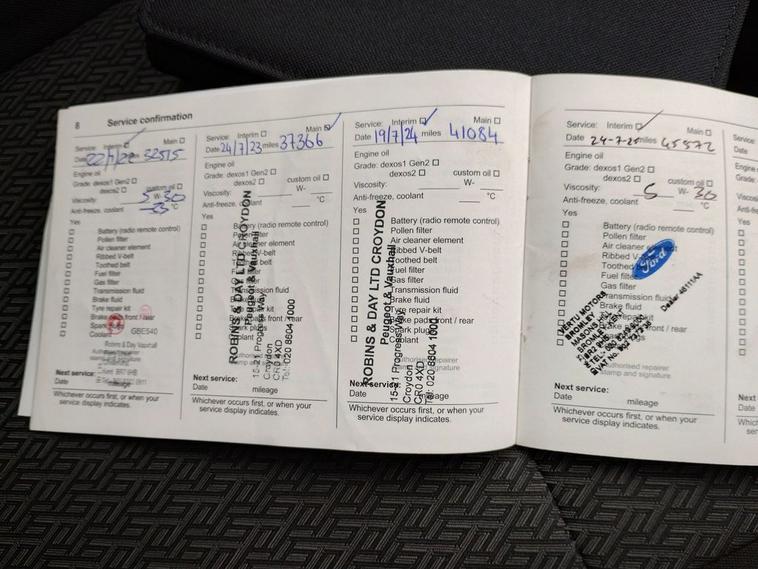 8 Service confirmation
Service: Interim Main
Date 22/7/22 32515
Engine oil
Grade: dexos1 Gen2
dexos2 custom oil
Viscosity: 5 W- 30
Anti-freeze, coolant -35 °C
Yes
Battery (radio remote control)
Pollen filter
Air cleaner element
Ribbed V-belt
Toothed belt
Fuel filter
Gas filter
Transmission fluid
Brake fluid
Tyre repair kit
Brake pads front / rear
Spark plugs
Coolant
GBE540
Robins & Day Vauxhall
Next service:
Date mileage
Whichever occurs first, or when your
service display indicates.
Service: Interim Main
Date 24/7/23 miles 37366
Engine oil
Grade: dexos1 Gen2
dexos2 custom oil
Viscosity: W-
Anti-freeze, coolant °C
Yes
Battery (radio remote control)
Pollen filter
Air cleaner element
Ribbed V-belt
Toothed belt
Fuel filter
Gas filter
Transmission fluid
Brake fluid
Tyre repair kit
Brake pads front / rear
Spark plugs
Coolant
ROBINS & DAY LTD CROYDON
Peugeot & Vauxhall
15-21 Progress Way
Croydon
CR0 4XD
Tel: 020 8604 1000
Next service:
Date mileage
Whichever occurs first, or when your
service display indicates.
Service: Interim Main
Date 19/7/24 miles 41084
Engine oil
Grade: dexos1 Gen2
dexos2 custom oil
Viscosity: W-
Anti-freeze, coolant °C
Yes
Battery (radio remote control)
Pollen filter
Air cleaner element
Ribbed V-belt
Toothed belt
Fuel filter
Gas filter
Transmission fluid
Brake fluid
Tyre repair kit
Brake pads front / rear
Spark plugs
Coolant
ROBINS & DAY LTD CROYDON
Peugeot & Vauxhall
15-21 Progress Way
Croydon
CR0 4XD
Tel: 020 8604 1000
Authorised repairer
stamp and signature
Next service:
Date mileage
Whichever occurs first, or when your
service display indicates.
Service: Interim Main
Date 24-7-25 miles 45572
Engine oil
Grade: dexos1 Gen2
dexos2 custom oil
Viscosity: 5 W- 30
Anti-freeze, coolant °C
Yes
Battery (radio remote control)
Pollen filter
Air cleaner
Ribbed V-belt
Toothed
Fuel filter
Gas filter
Transmission fluid
Brake fluid
Ford
VERTU MOTORS
BROMLEY
MASONS HILL
Dealer 46111AA
Authorised repairer
stamp and signature
Next service:
Date mileage
Whichever occurs first, or when your
service display indicates.
Service:
Date
Next
Date